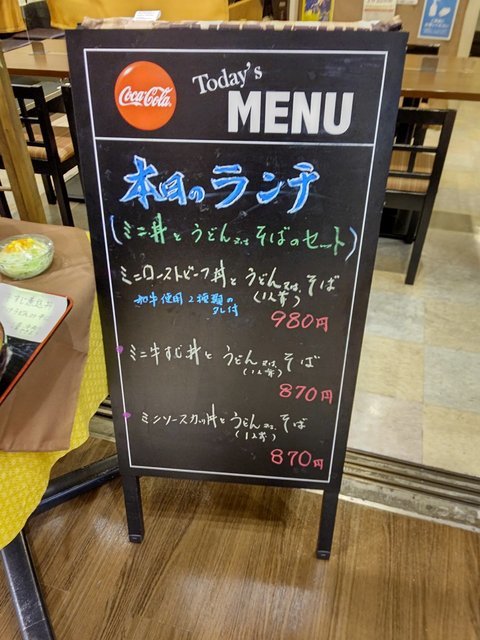 Coca-Cola
Today's
MENU
本日のランチ
(ミニ丼と うどん又は そばのセット)
ミニローストビーフ丼と うどん又は そば
(1人前)
和牛使用 2種類の
タレ付
980円
ミニ牛すじ丼と うどん又は そば
(1人前)
870円
ミニソースカツ丼と うどん又は そば
(1人前)
870円